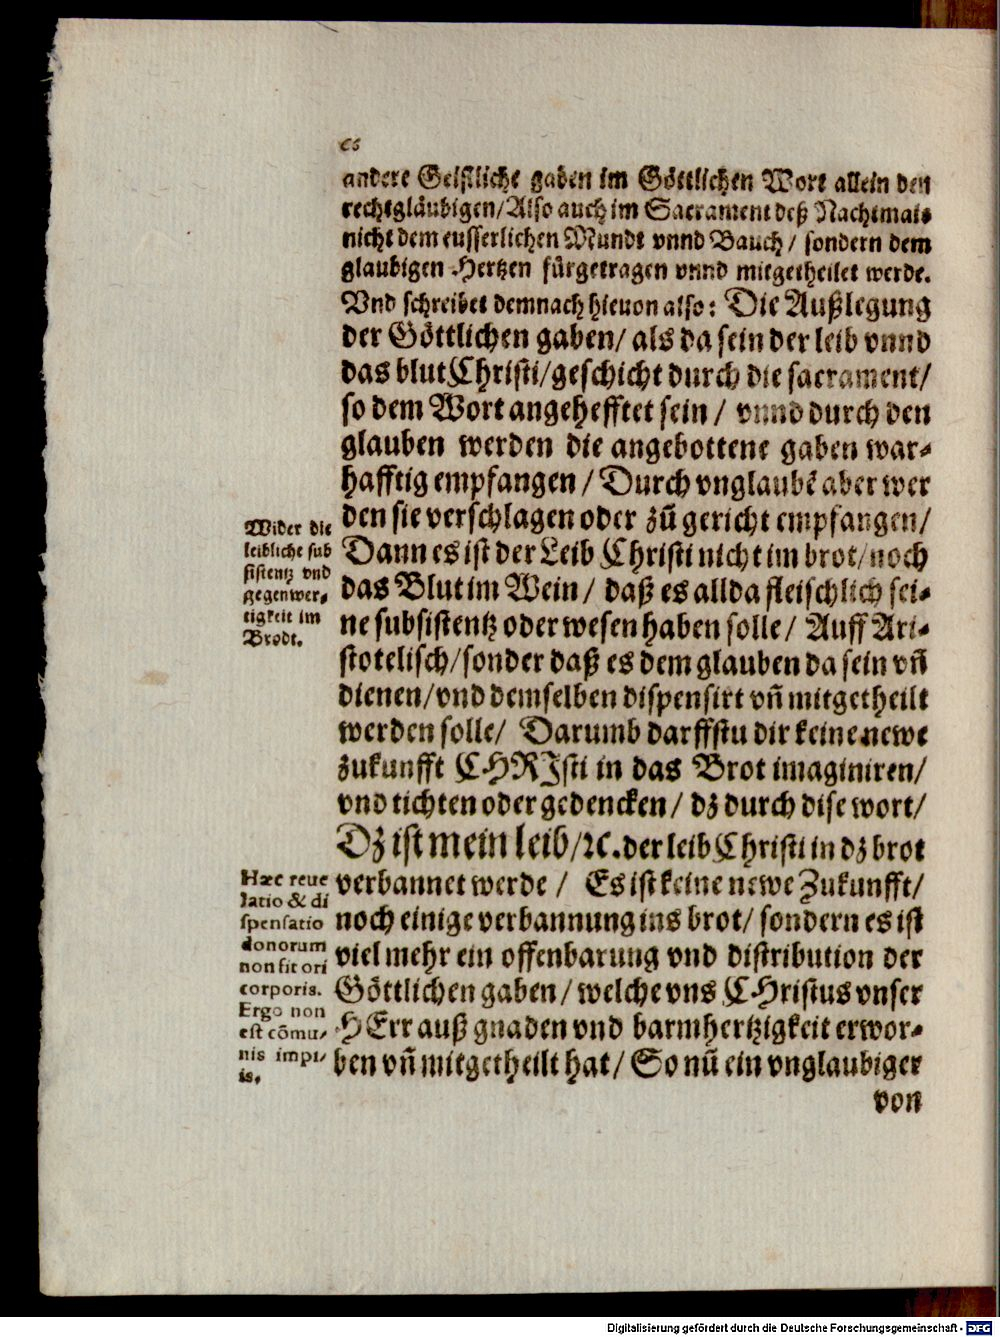 andere Geistliche gaben im Göttlichen Wort allein den
rechtgläubigen/Also auch im Sacrament deß Nachtmals
nicht dem eusserlichen Mundt vnnd Bauch/ sondern dem
glaubigen Hertzen fürgetragen vnnd mitgetheilet werde.
Vnd schreibet demnach hieuon also: Die Außlegung
der Göttlichen gaben/ als da sein der leib vnnd
das blut Christi/geschicht durch die sacrament/
so dem Wort angehefftet sein/ vnnd durch den
glauben werden die angebottene gaben war-
hafftig empfangen/ Durch vnglaubē aber wer
den sie verschlagen oder zū gericht empfangen/
Dann es ist der Leib Christi nicht im brot/noch
das Blut im Wein/ daß es allda fleischlich sei-
ne subsistentz oder wesen haben solle/ Auff Ari-
stotelisch/sonder daß es dem glauben da sein vñ
dienen/vnd demselben dispensirt vñ mitgetheilt
werden solle/ Darumb darffstu dir keine newe
zukunfft CHRIsti in das Brot imaginiren/
vnd tichten oder gedencken/ dz durch dise wort/
Dz ist mein leib/ꝛc. der leib Christi in dz brot
verbannet werde/ Es ist keine newe Zukunfft/
noch einige verbannung ins brot/ sondern es ist
viel mehr ein offenbarung vnd distribution der
Göttlichen gaben/welche vns CHristus vnser
HErr auß gnaden vnd barmhertzigkeit erwor-
ben vñ mitgetheilt hat/ So nū ein vnglaubiger
von
Wider die
leibliche sub
sistentz vnd
gegenwer-
tigkeit im
Brodt.
Hæc reue
latio & di
spensatio
donorum
non fit ori
corporis.
Ergo non
est cōmu-
nis impi-
is.
Digitalisierung gefördert durch die Deutsche Forschungsgemeinschaft - DFG